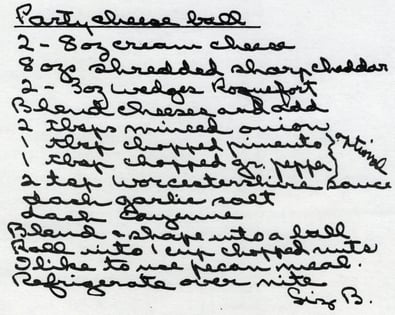 Party cheese ball
2 - 8oz cream cheese
8 ozs shredded sharp cheddar
2 - 3oz wedges Roquefort
Blend cheeses and add
2 tbsps minced onion
1 tbsp chopped pimento
1 tbsp chopped gr. pepper
optional
2 tsp worcestershire sauce
dash garlic salt
dash Cayenne
Blend & shape into a ball
Roll into 1 cup chopped nuts
I like to use pecan meal.
Refrigerate over nite
Liz B.